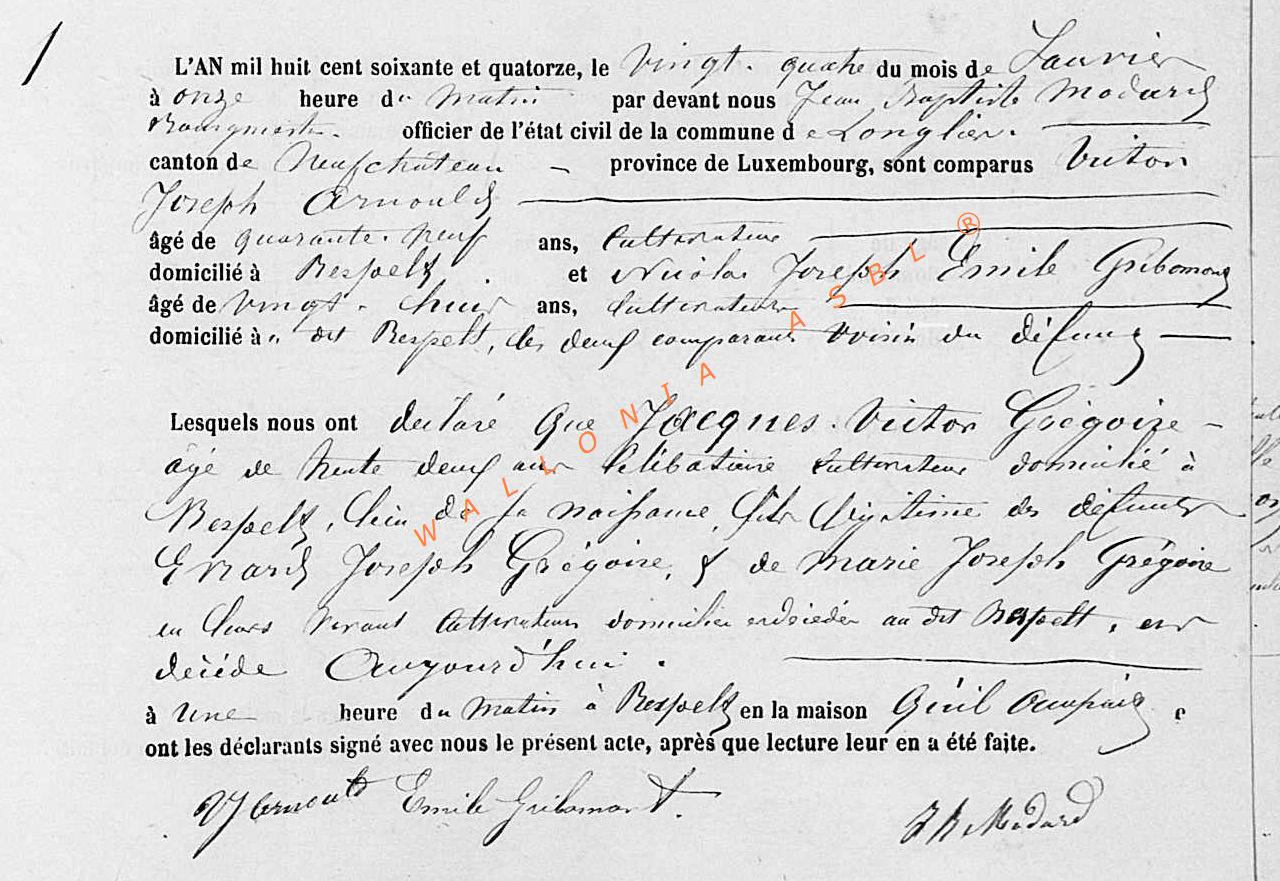 1
L'AN mil huit cent soixante et quatorze, le vingt-quatre du mois de Janvier
à onze heure du matin par devant nous Jean Baptiste Modard
Bourgmestre officier de l'état civil de la commune de Longlier.
canton de Neufchateau – province de Luxembourg, sont comparus Victor
Joseph Arnould
âgé de quarante-neuf ans, Cultivateur
domicilié à Respelt et Nicolas Joseph Emile Gribomont
âgé de vingt-huit ans, Cultivateur
domicilié à dit Respelt, les deux comparants voisins du défunt
Lesquels nous ont déclaré que Jacques Victor Grégoire
âgé de trente deux ans Célibataire Cultivateur domicilié à
Respelt, lieu de sa naissance, fils légitime des défunts
Evrard Joseph Grégoire, & de Marie Joseph Grégoire
en leurs vivant Cultivateurs domiciliés et décédés au dit Respelt, est
décédé Aujourd'hui.
à une heure du matin à Respelt en la maison Qu'il occupait e
ont les déclarants signé avec nous le présent acte, après que lecture leur en a été faite.
VJ Arnould Emile Gribomont. JB Modard
WALLONIA ASBL ®